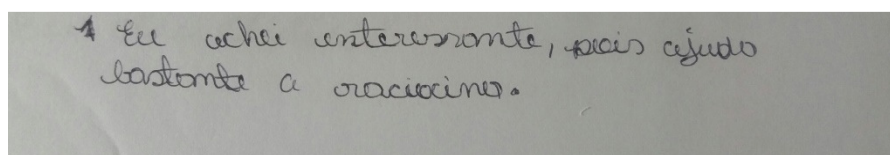 1 Eu achei interessante, pois ajudo
bastante a raciocinar.